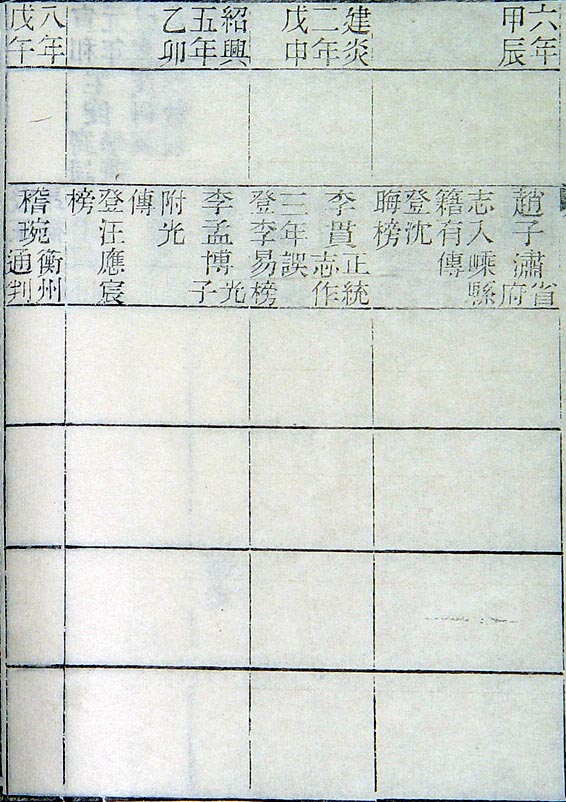 六年
甲辰
趙子潚省
府
志入嵊縣
籍有傳
登沈
晦榜
建炎
二年
戊申
李貫正統
志作
三年誤
登李易榜
紹興
五年
乙卯
李孟博光
子
附光
傳
登汪應宸
榜
八年
戊午
稽琬衡州
通判